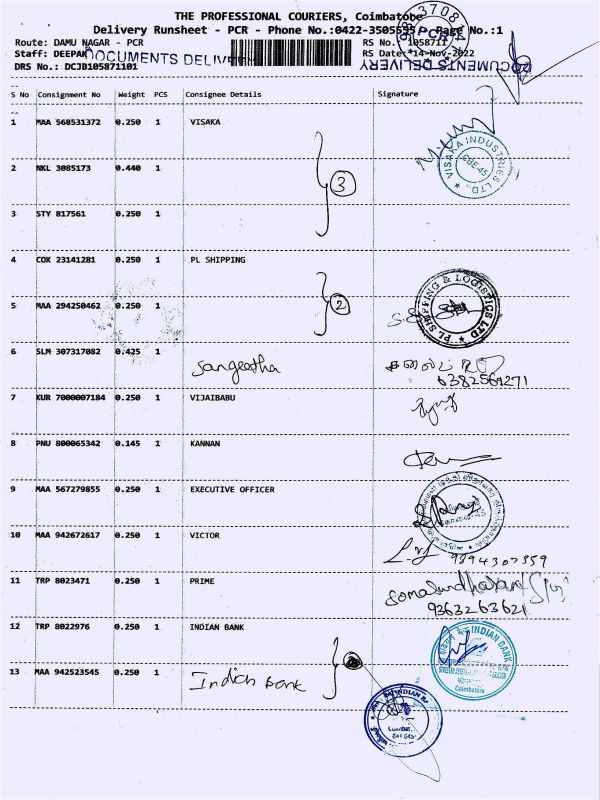 THE PROFESSIONAL COURIERS, Coimbatore
Delivery Runsheet - PCR - Phone No.:0422-3505555 Page No.:1
Route: DAMU NAGAR - PCR
RS No.: 1058711
Staff: DEEPAK
RS Date: 14-Nov-2022
DRS No.: DCJB105871101
DOCUMENTS DELIVERY
DOCUMENTS DELIVERY
PCR
S No Consignment No Weight PCS Consignee Details Signature
1 MAA 568531372 0.250 1 VISAKA
VISAKA INDUSTRIES LTD., CBE-45
2 NKL 3085173 0.440 1
3
3 STY 817561 0.250 1
4 COK 23141281 0.250 1 PL SHIPPING
2
PL SHIPPING & LOGISTICS LTD
5 MAA 294250462 0.250 1
6 SLM 307317082 0.425 1 Sangeetha
6382561271
7 KUR 7000007184 0.250 1 VIJAIBABU
8 PNU 800065342 0.145 1 KANNAN
9 MAA 567279855 0.250 1 EXECUTIVE OFFICER
10 MAA 942672617 0.250 1 VICTOR
9894307359
11 TRP 8023471 0.250 1 PRIME
9363263621
12 TRP 8022976 0.250 1 INDIAN BANK
INDIAN BANK
Coimbatore
13 MAA 942523545 0.250 1 Indian Bank
INDIAN BANK